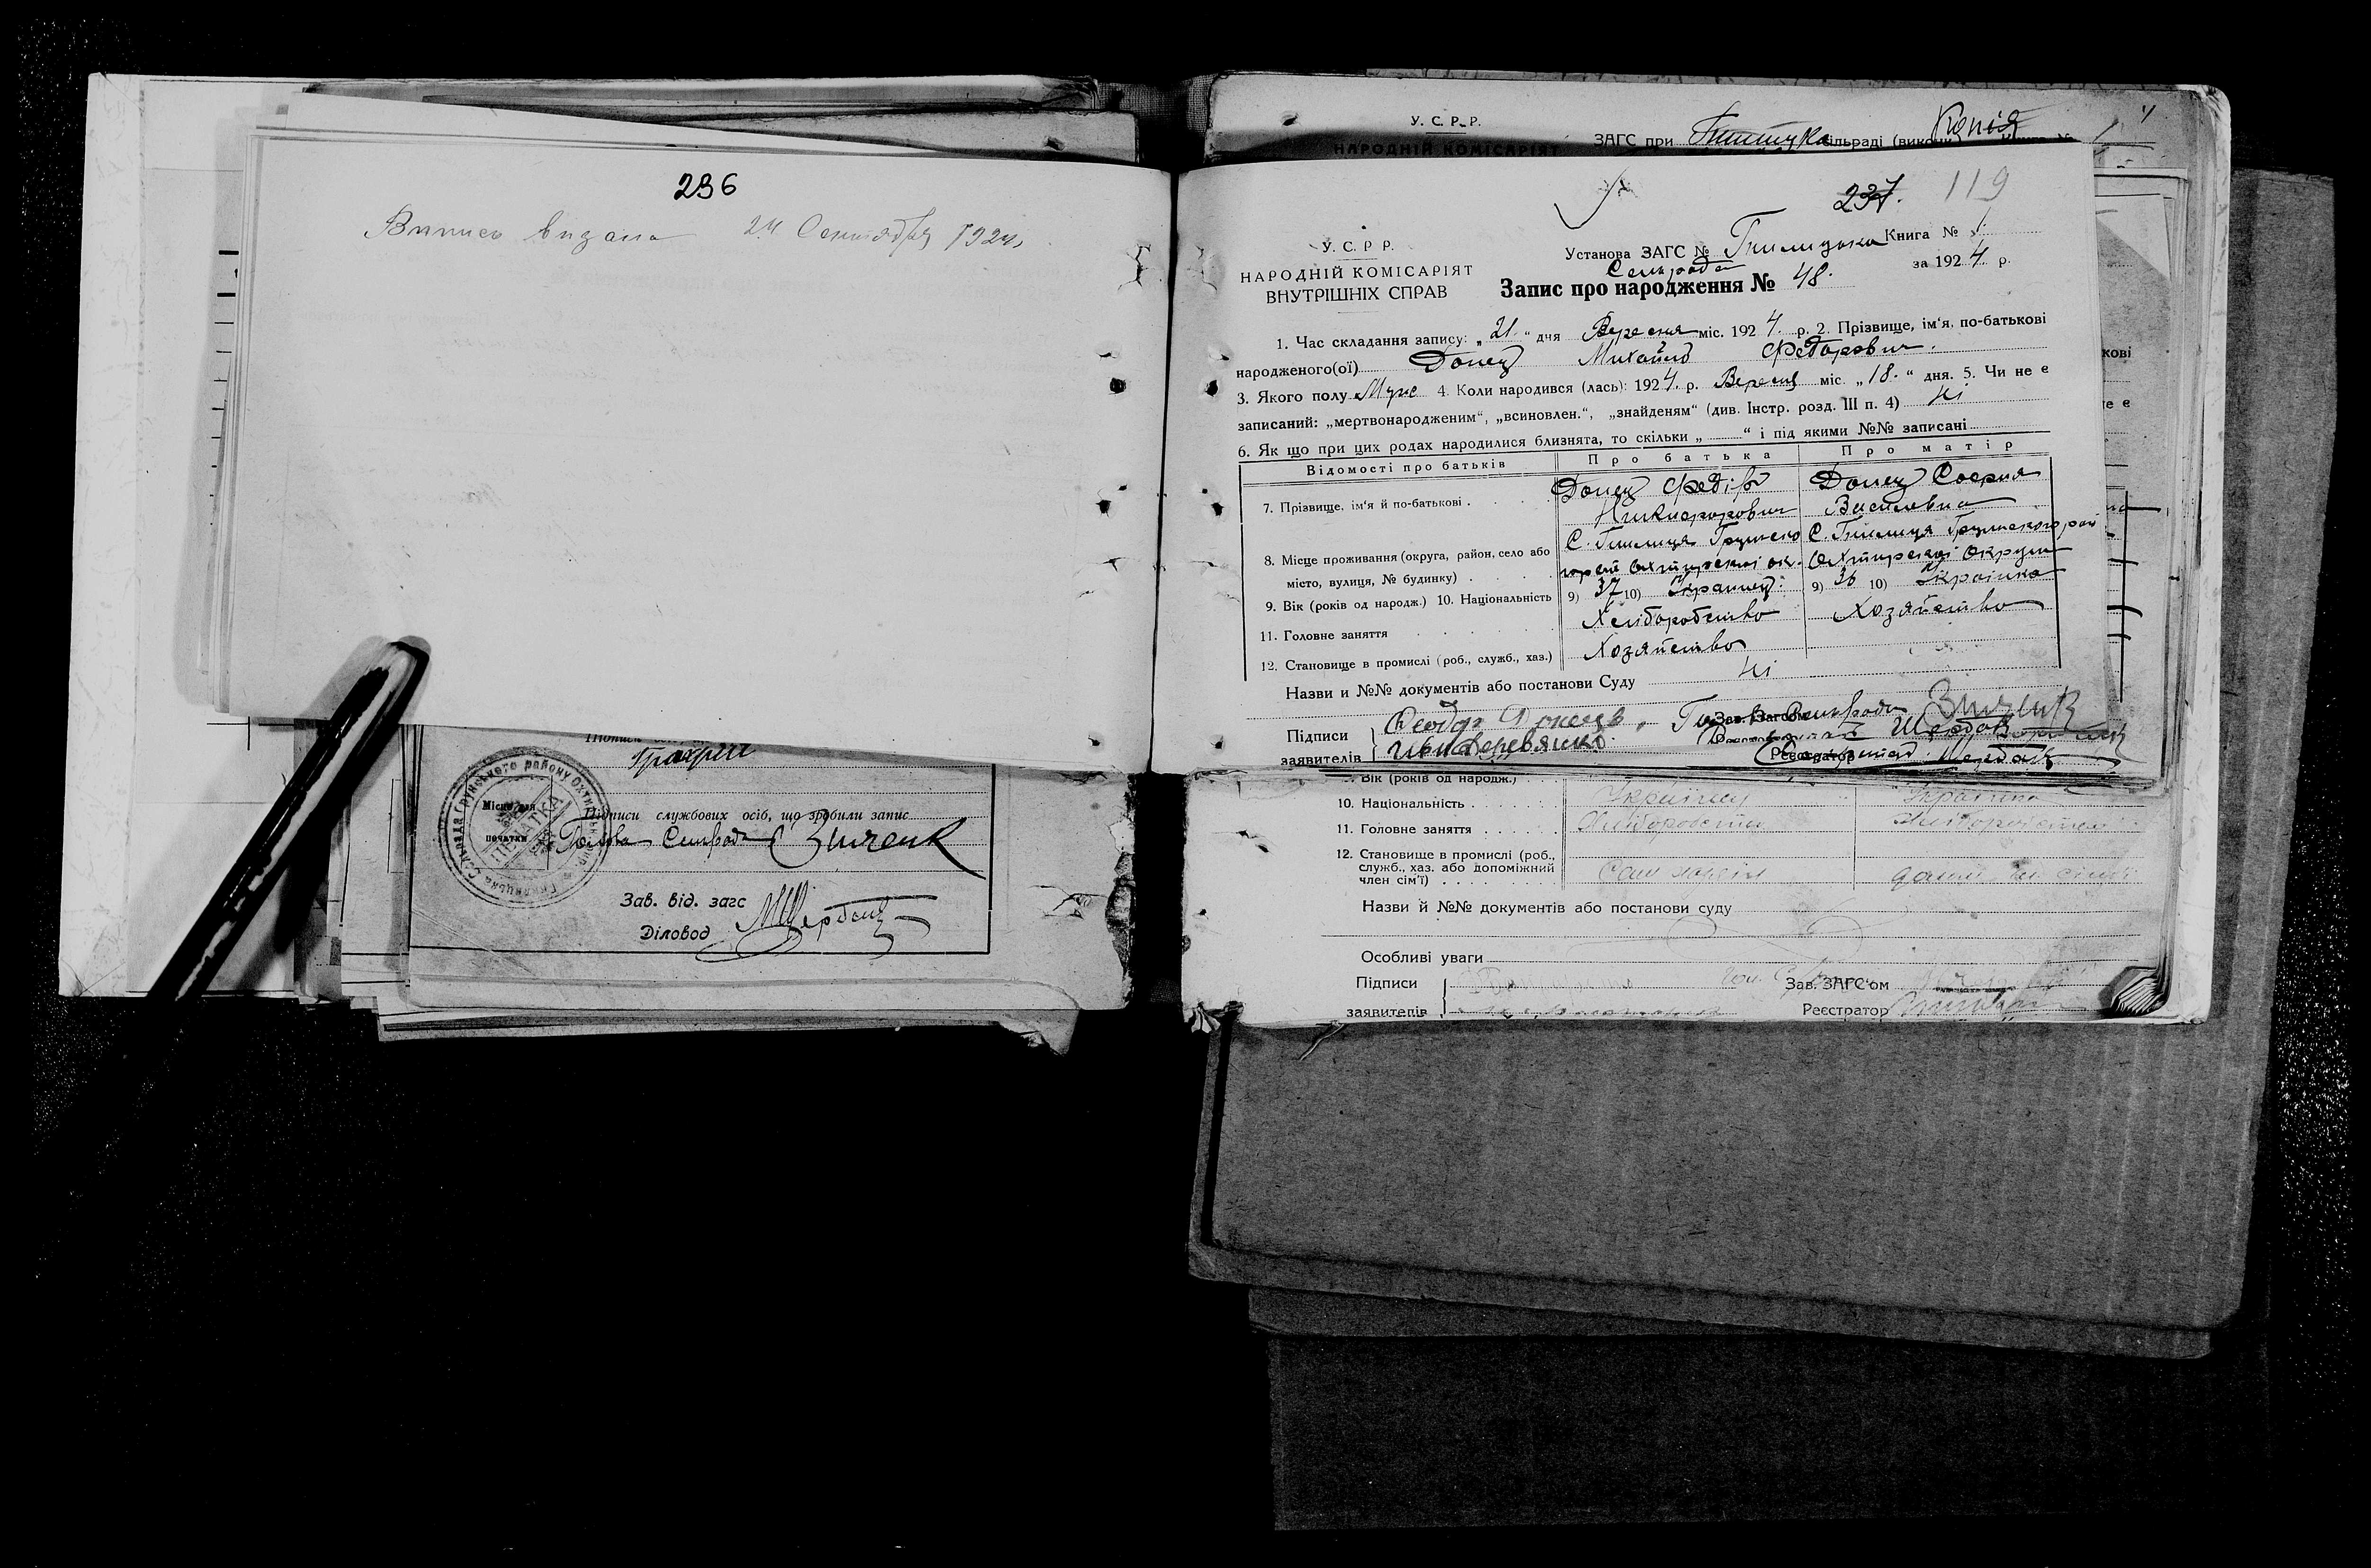 236
Выпись выдана 24 Сентября 1924
Підписи службових осіб, що зробили запис
Місце для
печатки
Голова Сельради Зінченк
Зав. від. загс
Діловод
У. С. Р. Р.
НАРОДНІЙ КОМІСАРІЯТ
ЗАГС при сільраді Копія
237. 119
У. С. Р Р.
НАРОДНІЙ КОМІСАРІЯТ
ВНУТРІШНІХ СПРАВ
Установа ЗАГС № Гнилицька Книга № 1
Сельрада за 1924 р.
Запис про народження № 48.
1. Час складання запису: „21“ дня Вересня міс. 1924 р. 2. Прізвище, ім'я, по-батькові
народженого(ої) Донец Михайло Федорович.
3. Якого полу Муже 4. Коли народився (лась): 1924 р. Вересня міс. „18.“ дня. 5. Чи не є
записаний: „мертвонародженим“, „всиновлен.“, „знайденям“ (див. Інстр. розд. III п. 4) Ні
6. Як що при цих родах народилися близнята, то скільки „ “ і під якими №№ записані
Відомості про батьків Про батька Про матір
7. Прізвище, ім'я й по-батькові Донец Федір Донец София
Никифорович Василевна
8. Місце проживання (округа, район, село або С. Гнилиця Грунско С. Гнилиця Грунского рай
місто, вулиця, № будинку) Охтирскоі ок. Охтирскоі Округи
9. Вік (років од народж.) 10. Національність 9) 37 10) Украінец 9) 36 10) Украінка
11. Головне заняття Хліборобство Хозяйство
12. Становище в промислі (роб., служб., хаз.) Хозяйство
Назви и №№ документів або постанови Суду Ні
Підписи Федор Донець Голова Сельради Зінченк
заявителів Иван Деревянко Щербак
Реєстратор
Вік (років од народж.)
10. Національність Українец Українка
11. Головне заняття Хліборобство
12. Становище в промислі (роб.,
служб., хаз. або допоміжний
член сім'ї)
Назви й №№ документів або постанови суду
Особливі уваги
Підписи Зав. ЗАГС'ом
заявителів Реєстратор